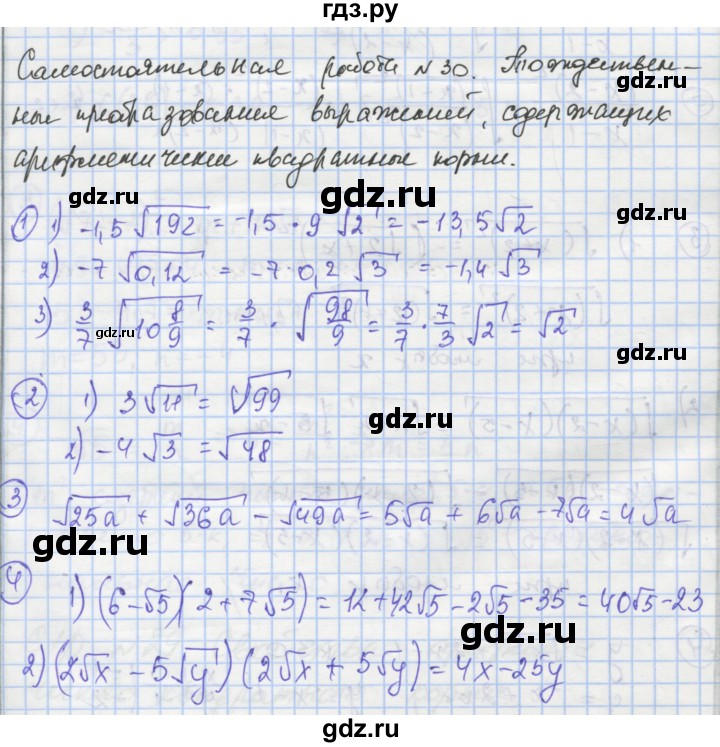 гдз.ру
Самостоятельная работа №30. Тождествен-
ные преобразования выражений, содержащих
арифметические квадратные корни.
gdz.ru gdz.ru
① 1) -1,5 √192 = -1,5 · 9 √2 = -13,5 √2
2) -7 √0,12 = -7 · 0,2 √3 = -1,4 √3
gdz.ru
3) 3/7 √(10 8/9) = 3/7 · √(98/9) = 3/7 · 7/3 √2 = √2
gdz.ru gdz.ru
② 1) 3 √11 = √99
gdz.ru
2) -4 √3 = √48
gdz.ru
3 √25a + √36a - √49a = 5√a + 6√a - 7√a = 4√a
gdz.ru
4 1) (6 - √5)(2 + 7√5) = 12 + 42√5 - 2√5 - 35 = 40√5 - 23
gdz.ru
2) (2√x - 5√y)(2√x + 5√y) = 4x - 25y
gdz.ru gdz.ru
gdz.ru